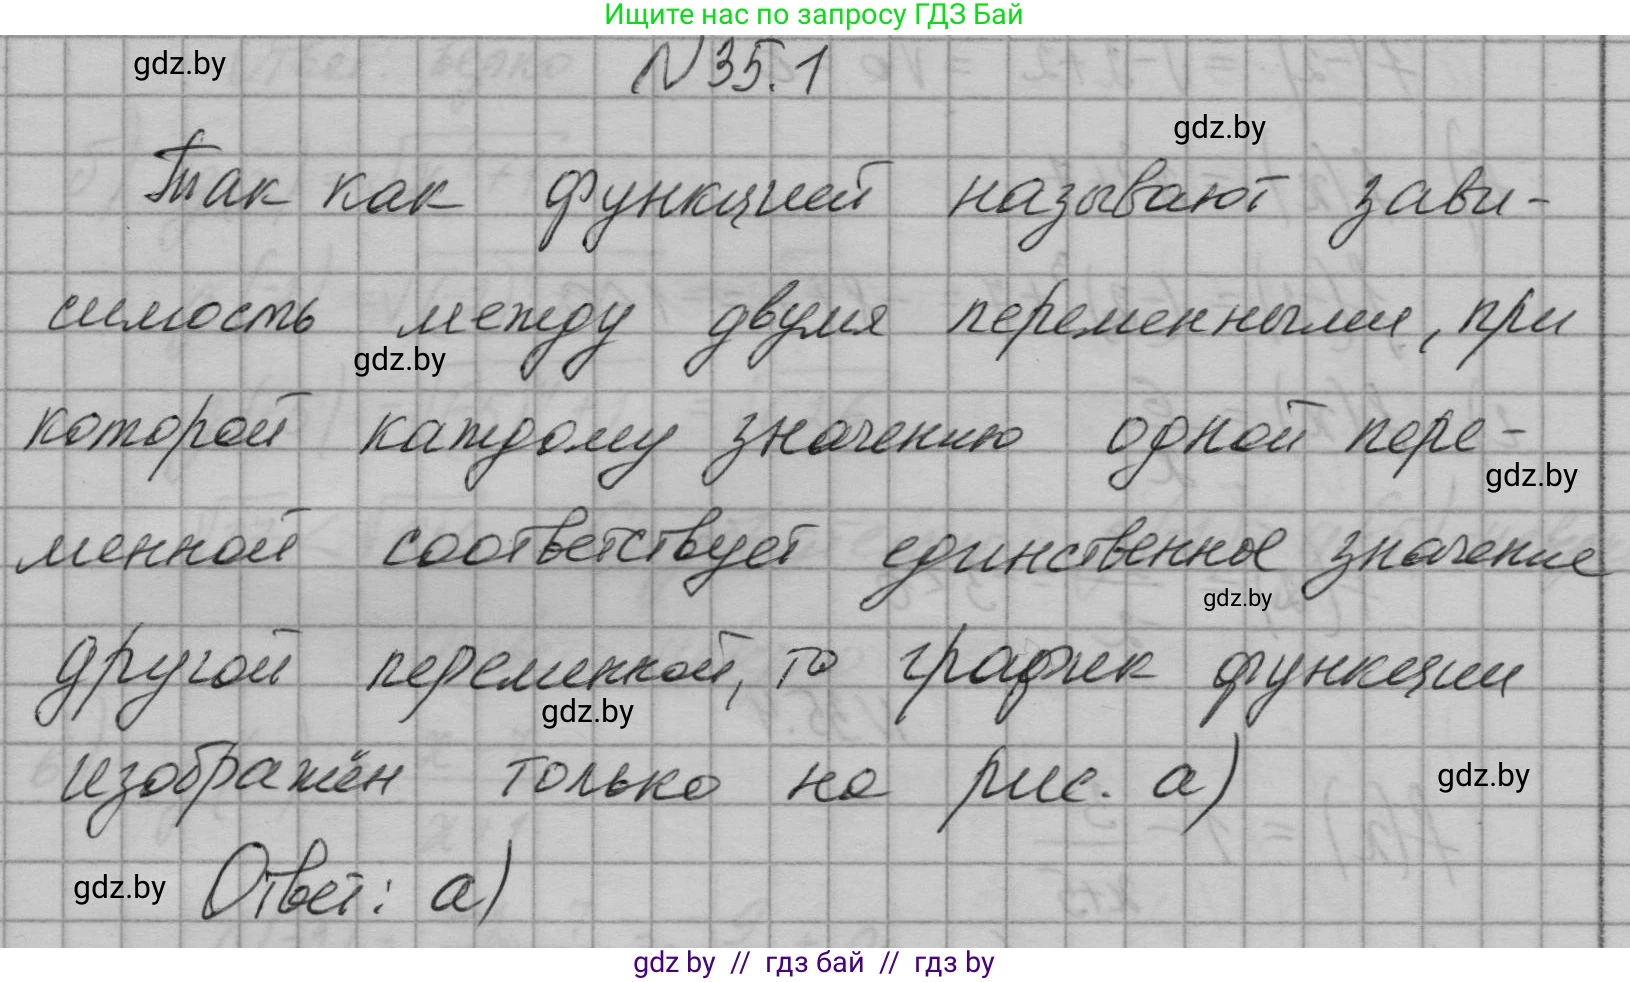 Ищите нас по запросу ГДЗ Бай
gdz.by
№ 35.1
gdz.by
Так как функцией называют зави-
симость между двумя переменными, при
gdz.by
которой каждому значению одной пере-
gdz.by
менной соответствует единственное значение
gdz.by
другой переменной, то график функции
gdz.by
изображён только на рис. а)
gdz.by
gdz.by
Ответ: а)
gdz by // гдз бай // гдз by